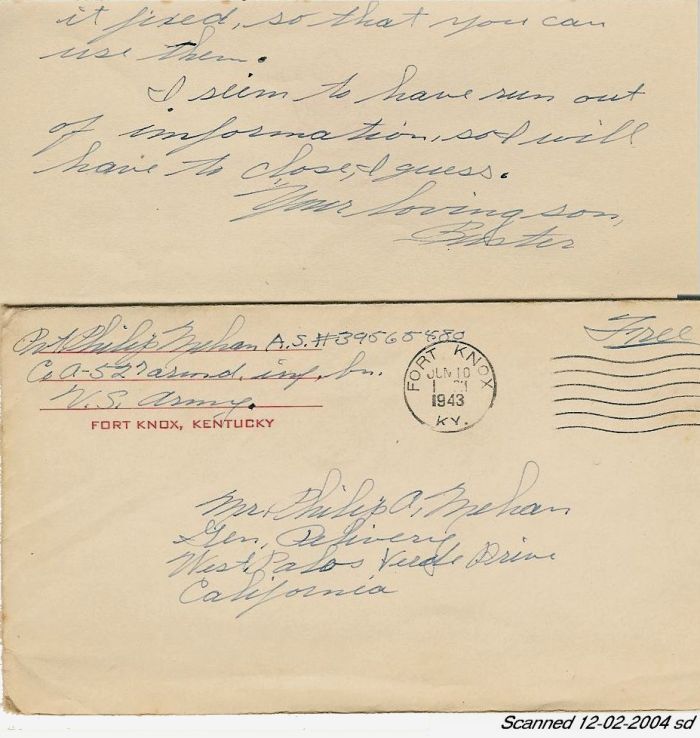 it fixed, so that you can
use them.
I seem to have run out
of information, so I will
have to close, I guess.
Your loving son,
Buster
Pvt Philip Mehan A.S.#39565480
Co A-527 armd. inf. bn.
U.S. Army.
FORT KNOX, KENTUCKY
FORT KNOX
JUN 10
1
1943
KY.
Free
Mr. Philip A. Mehan
Gen. Delivery
West Palos Verde Drive
California
Scanned 12-02-2004 sd